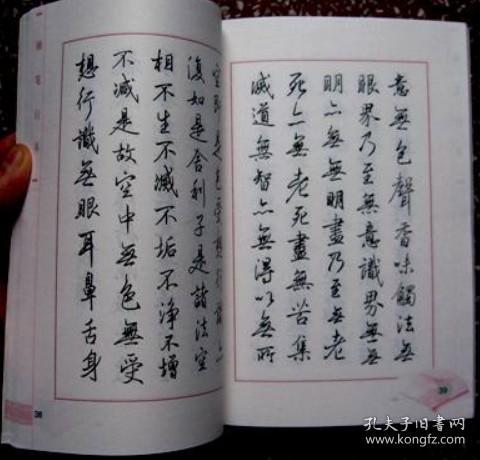 空即是色受想行識亦
復如是舍利子是諸法空
相不生不滅不垢不淨不增
不減是故空中無色無受
想行識無眼耳鼻舌身
38
意無色聲香味觸法無
眼界乃至無意識界無無
明亦無無明盡乃至無老
死亦無老死盡無苦集
滅道無智亦無得以無所
39
孔夫子旧书网
www.kongfz.com